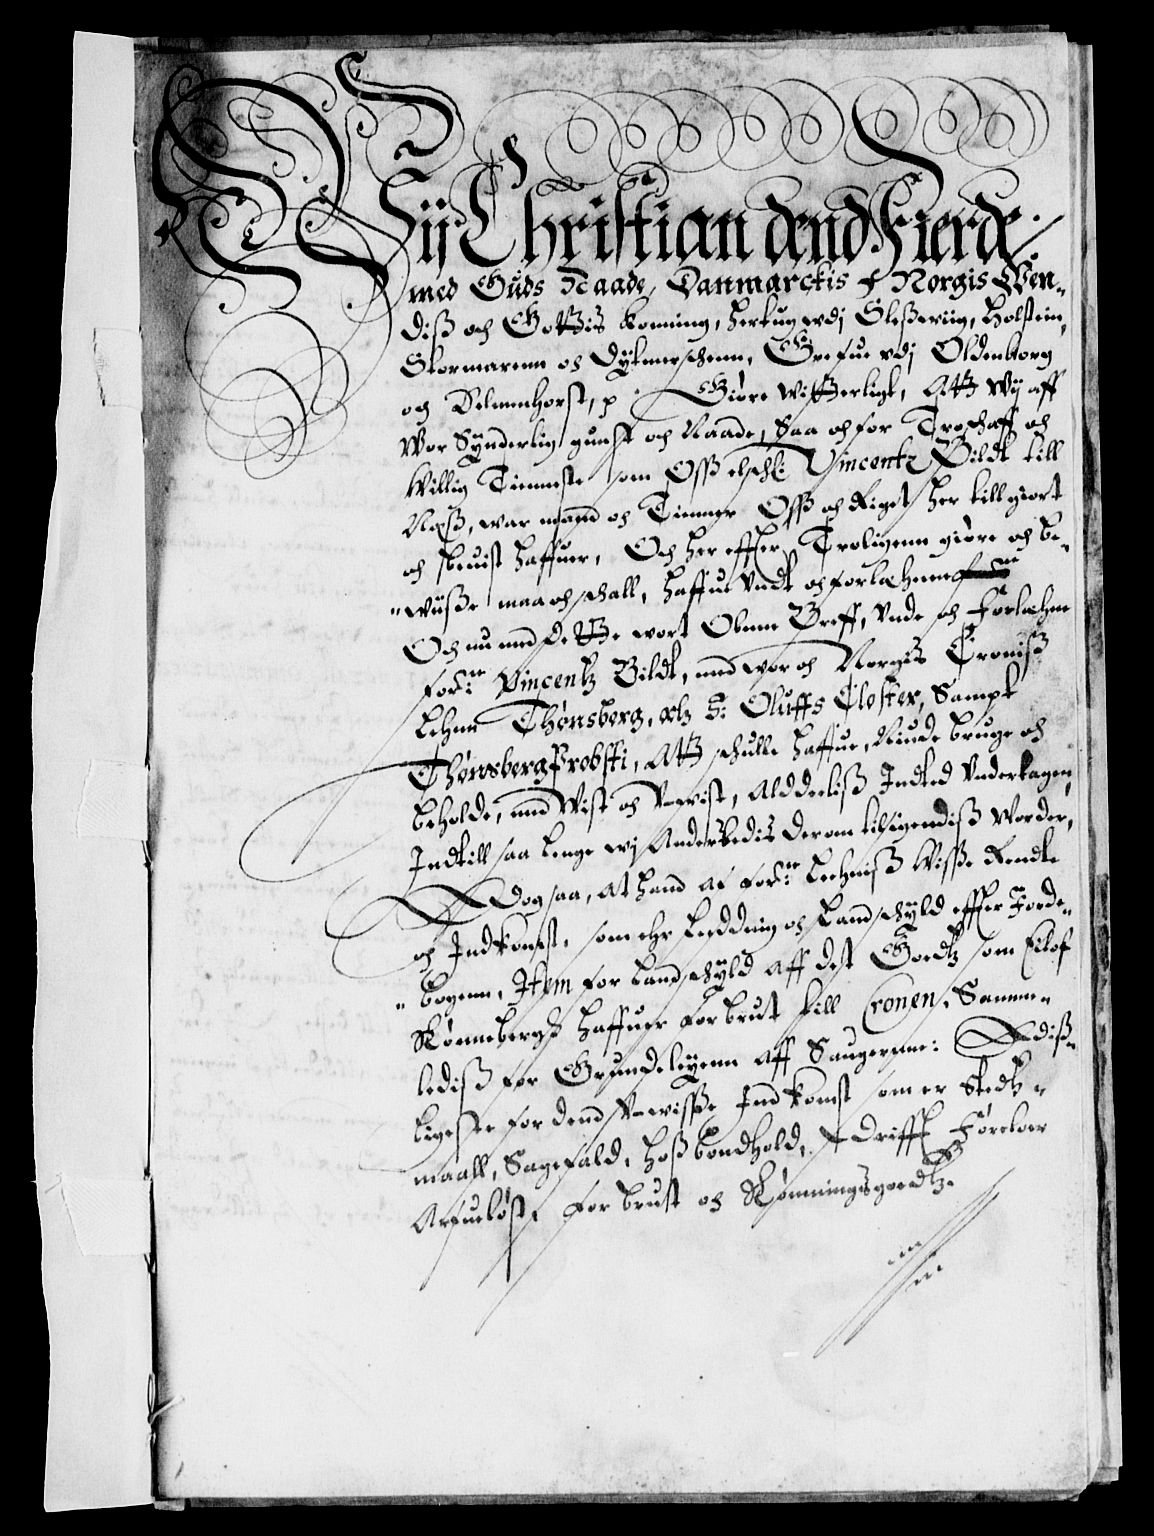 Wii Christian dend Fierde
med Guds Naade, Danmarckis, Norgis Wen-
diß och Gottis Konning, hertug vdj Sleßwiig, Holstein,
Stormarenn och Dytmerschenn, Grefue vdj Oldenborg
og Delmenhorst, Giøre Witterligt, Att Wij aff
Wor Synderlig gunst och Naade, Saa och for Troschaff och
Willig Tienneste som Oß elschel: Vincentz Bildt till
Næß, wor mand och Tienner Oß och Riget her till giort
och beuist haffuer, Och her effter Troligenn giøre och be-
wiiße maa och schall, haffue vndt och forlæhnne
Och nu med dette wort Obne Breff, Unde och Forlæhne
forne Vincentz Bildt, med wor och Norgis Croniß
Lehne Thønsberg, S: Oluffs Closter, Sampt
Thønsberg Probsti, Att schulle haffue, Niude bruge och
beholde, med Wist och Vwist, Aldeeliß Indted Undertagen,
Indtill saa lenge wj Anderledis derom tilsigendiß Worder,
Dog saa, At hand af forne Leehniß Wiße Rendte
och Indkomst, som ehr Leedding och Landschyld effter Jorde-
bogenn, Item for Landschyld aff det Goedtz som Ellof
Rønnebergs haffuer Forbrut till Cronen, Samme-
lediß for Grundeleyenn aff Saugerne: Diß-
ligeste for dend Vwiße Indkomst som er Stedtz-
maall, Sagefald, hoßbondhold, Drifft Føreloer
Arfueløst, Forbrutt och Kønningsgoedtz.